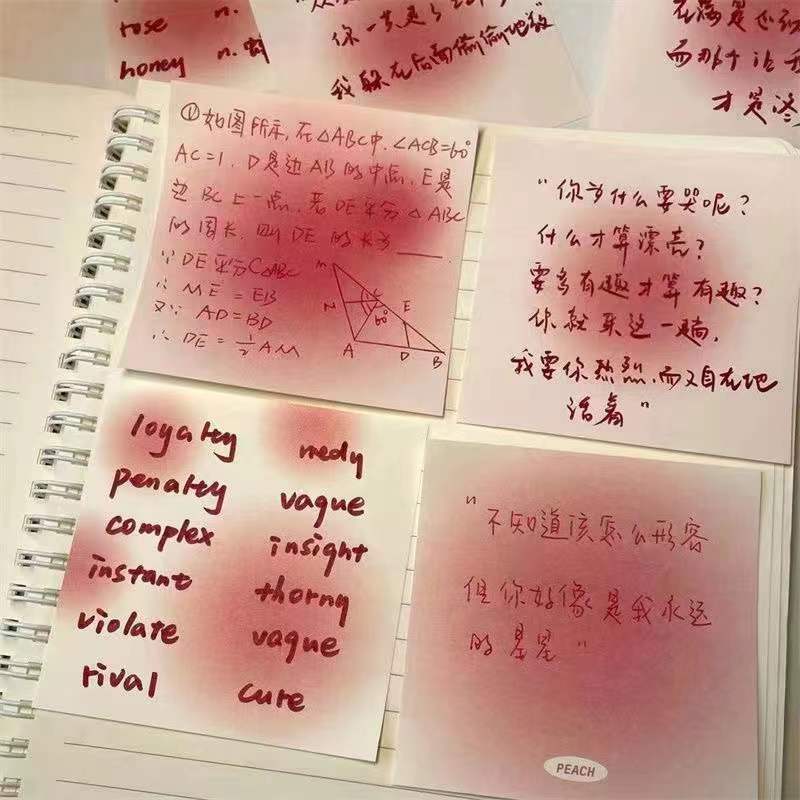 rose n.
honey n.
我躲在后面偷偷地放
才是
①如图所示,在△ABC中,∠ACB=60°
AC=1,D是边AB的中点,E是
边BC上一点,若DE平分△ABC
的周长,则DE的长为____.
∵DE平分C△ABC
∴ME=EB
又∵AD=BD
∴DE=½AM
M
N
C
E
60°
A
D
B
"你为什么要哭呢?
什么才算漂亮?
要多有趣才算有趣?
你就来这一趟,
我要你热烈,而又自在地
活着"
loyalty
penalty
complex
instant
violate
rival
medy
vague
insight
thorny
vague
cure
"不知道该怎么形容
但你好像是我永远
的星星"
PEACH